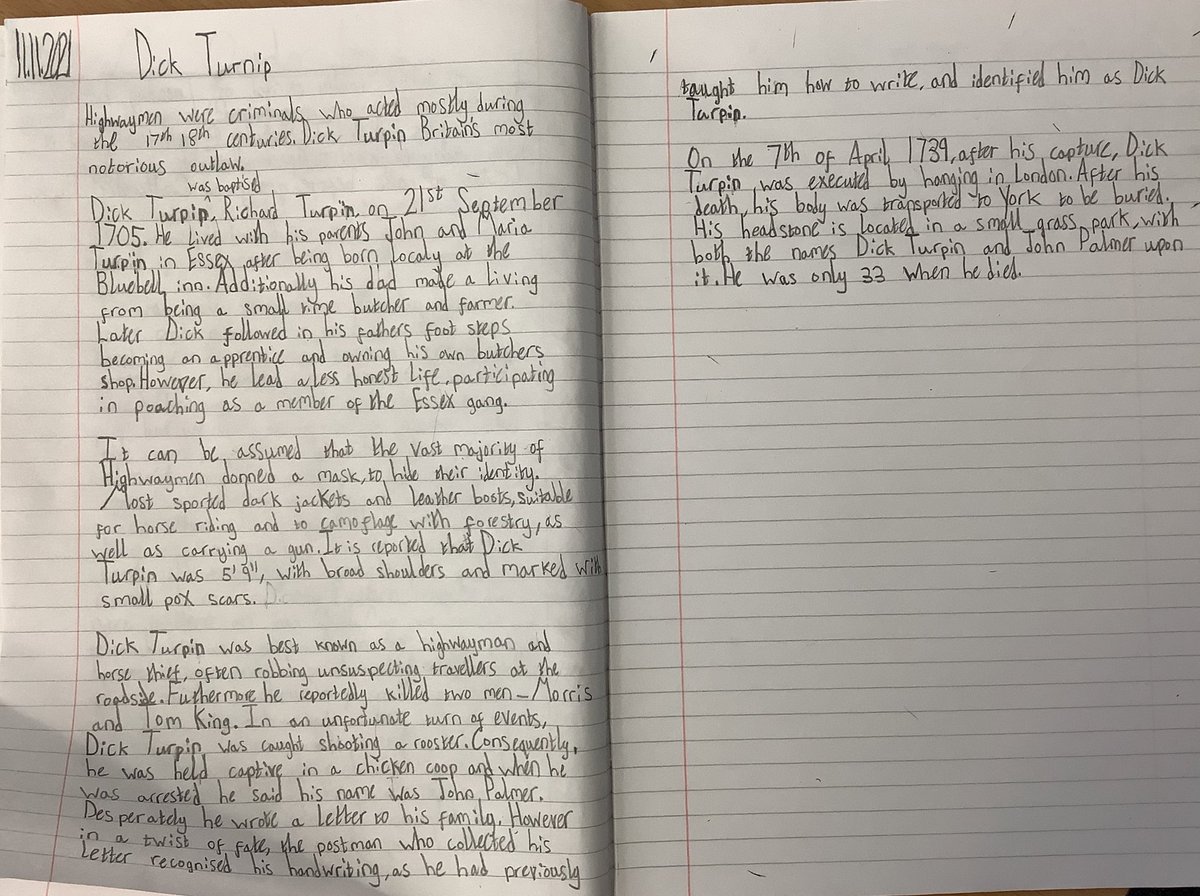 11.11.2021
Dick Turnip
Highwaymen were criminals who acted mostly during
the 17th 18th centuries. Dick Turpin Britain's most
notorious outlaw.
was baptised
Dick Turpin ^ Richard Turpin on 21st September
1705. He lived with his parents John and Maria
Turpin in Essex after being born localy at the
Bluebell inn. Additionally his dad made a living
from being a small time butcher and farmer.
Later Dick followed in his fathers foot steps
becoming an apprentice and owning his own butchers
shop. However, he lead a less honest life, participating
in poaching as a member of the Essex gang.
It can be assumed that the vast majority of
Highwaymen donned a mask, to hide their identity.
Most sported dark jackets and leather boots, suitable
for horse riding and to camoflage with forestry, as
well as carrying a gun. It is reported that Dick
Turpin was 5'9", with broad shoulders and marked with
small pox scars.
Dick Turpin was best known as a highwayman and
horse thief, often robbing unsuspecting travellers at the
roadside. Futhermore he reportedly killed two men – Morris
and Tom King. In an unfortunate turn of events,
Dick Turpin was caught shooting a rooster. Consequently,
he was held captive in a chicken coop and when he
was arrested he said his name was John Palmer.
Desperately he wrote a letter to his family. However
in a twist of fate, the postman who collected his
letter recognised his handwriting, as he had previously
taught him how to write, and identified him as Dick
Turpin.
On the 7th of April 1739, after his capture, Dick
Turpin was executed by hanging in London. After his
death, his body was transported to York to be buried.
His headstone is located in a small grass park, with
both the names Dick Turpin and John Palmer upon
it. He was only 33 when he died.